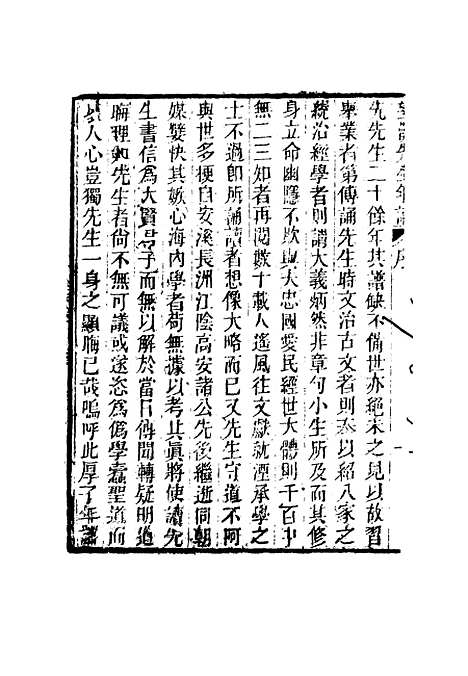 先生二十餘年其譜缺不備世亦絕未之見以故習
舉業者第傳誦先生時文治古文者則奉以紹八家之
統治經學者則謂大義炳然非章句小生所及而其修
身立命幽隱不欺與大忠國愛民經世大體則千百中
無二三知者再閱數十載人遙風往文獻就湮承學之
士不過卽所誦讀者想像大略而已又先生守道不阿
與世多梗自安溪長洲江陰高安諸公先後繼逝同朝
媒孽快其娭心海內學者苟無據以考其眞將使讀先
生書信爲大賢君子而無以解於當日傳聞轉疑明道
晦理如先生者尙不無可議或遂恣爲僞學蠹聖道而
人心豈獨先生一身之顯晦已哉嗚呼此厚子年譜